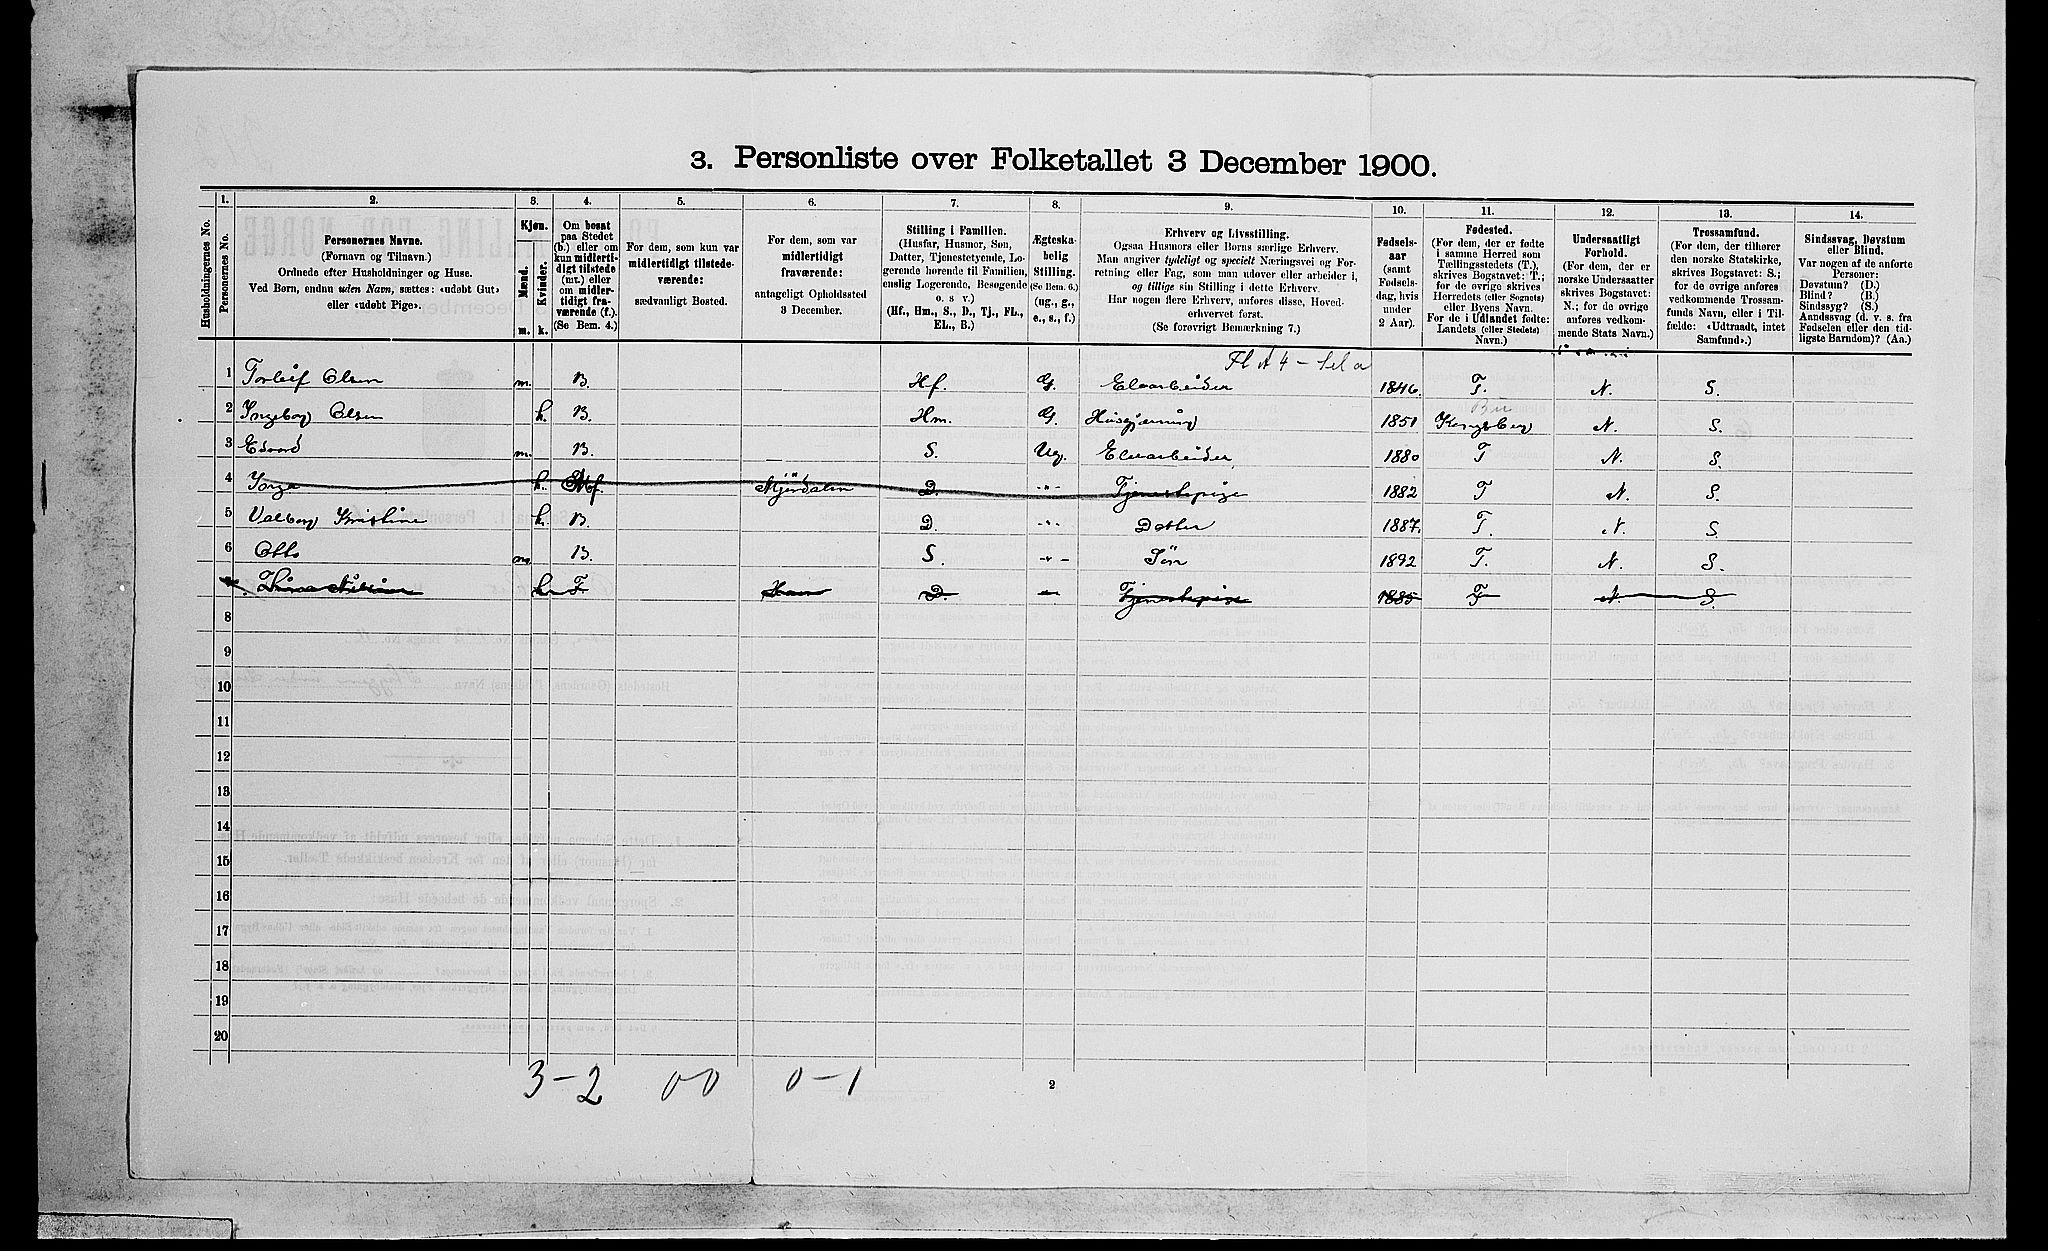 3. Personliste over Folketallet 3 December 1900.
Husholdningernes No.
1.
Personernes No.
2.
Personernes Navne.
(Fornavn og Tilnavn.)
Ordnede efter Husholdninger og Huse.
Ved Børn, endnu uden Navn, sættes: «udøbt Gut»
eller «udøbt Pige».
3.
Kjøn.
Mænd.
m.
Kvinder.
k.
4.
Om bosat
paa Stedet
(b.) eller om
kun midlerti-
digt tilstede
(mt.) eller
om midler-
tidigt fra-
værende (f.).
(Se Bem. 4.)
5.
For dem, som kun var
midlertidigt tilstede-
værende:
sædvanligt Bosted.
6.
For dem, som var
midlertidigt
fraværende:
antageligt Opholdssted
3 December.
7.
Stilling i Familien.
(Husfar, Husmor, Søn,
Datter, Tjenestetyende, Lo-
gerende hørende til Familien,
enslig Logerende, Besøgende
o. s v.)
(Hf., Hm., S., D., Tj., FL.,
EL., B.)
8.
Ægteska-
belig
Stilling.
(Se Bem. 6.)
(ug., g.,
e., s., f.)
9.
Erhverv og Livsstilling.
Ogsaa Husmors eller Børns særlige Erhverv.
Man angiver tydeligt og specielt Næringsvei og For-
retning eller Fag, som man udøver eller arbeider i,
og tillige sin Stilling i dette Erhverv.
Har nogen flere Erhverv, anføres disse, Hoved-
erhvervet først.
(Se forøvrigt Bemærkning 7.)
10.
Fødsels-
aar
(samt
Fødsels-
dag, hvis
under
2 Aar).
11.
Fødested.
(For dem, der er fødte
i samme Herred som
Tællingsstedets (T.),
skrives Bogstavet: T.;
for de øvrige skrives
Herredets (eller Sognets)
eller Byens Navn.
For de i Udlandet fødte:
Landets (eller Stedets)
Navn.)
12.
Undersaatligt
Forhold.
(For dem, der er
norske Undersaatter
skrives Bogstavet:
N.; for de øvrige
anføres vedkom-
mende Stats Navn.)
13.
Trossamfund.
(For dem, der tilhører
den norske Statskirke,
skrives Bogstavet: S.;
for de øvrige anføres
vedkommende Trossam-
funds Navn, eller i Til-
fælde: «Udtraadt, intet
Samfund».)
14.
Sindssvag, Døvstum
eller Blind.
Var nogen af de anførte
Personer:
Døvstum? (D.)
Blind? (B.)
Sindssyg? (S.)
Aandssvag (d. v. s. fra
Fødselen eller den tid-
ligste Barndom)? (Aa.)
1 Torleif Olsen m. B. Hf. G. Elvarbeider 1846. T. N. S.
2 Ingeborg Olsen k. B. Hm. G. Husgjerning 1851 Kongsberg N. S.
3 Edvard m. B. S. Ug. Elvarbeider 1880 T N. S.
4 k. Mjøndalen D. -"- Tjenestepige 1882 T N. S.
5 Valborg Kristine k. B. D. -"- Datter 1887. T. N. S
6 Otto m. B. S. -"- Søn 1892 T. N. S.
k F. D. Tjenestepige 1885 T N. S.
8
9
10
11
12
13
14
15
16
17
18
19
20
3-2 0 0 0-1
2